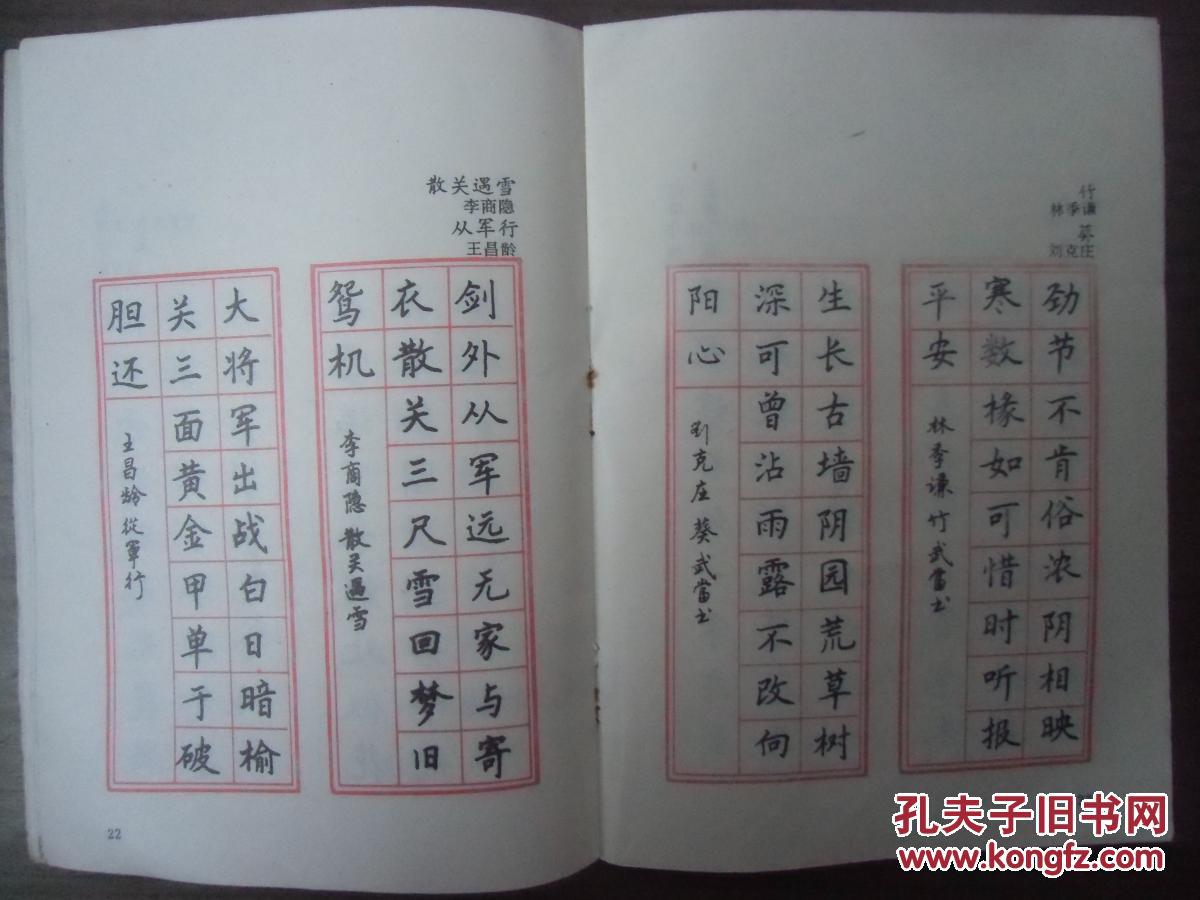 散关遇雪
李商隐
从军行
王昌龄
剑外从军远无家与寄
衣散关三尺雪回梦旧
鸳机
李商隐 散关遇雪
大将军出战白日暗榆
关三面黄金甲单于破
胆还
王昌龄從軍行
22
竹
林季谦
葵
刘克庄
劲节不肯俗浓阴相映
寒数椽如可惜时听报
平安
林季谦竹武當书
生长古墙阴园荒草树
深可曾沾雨露不改向
阳心
刘克庄 葵武當书
孔夫子旧书网
www.kongfz.com